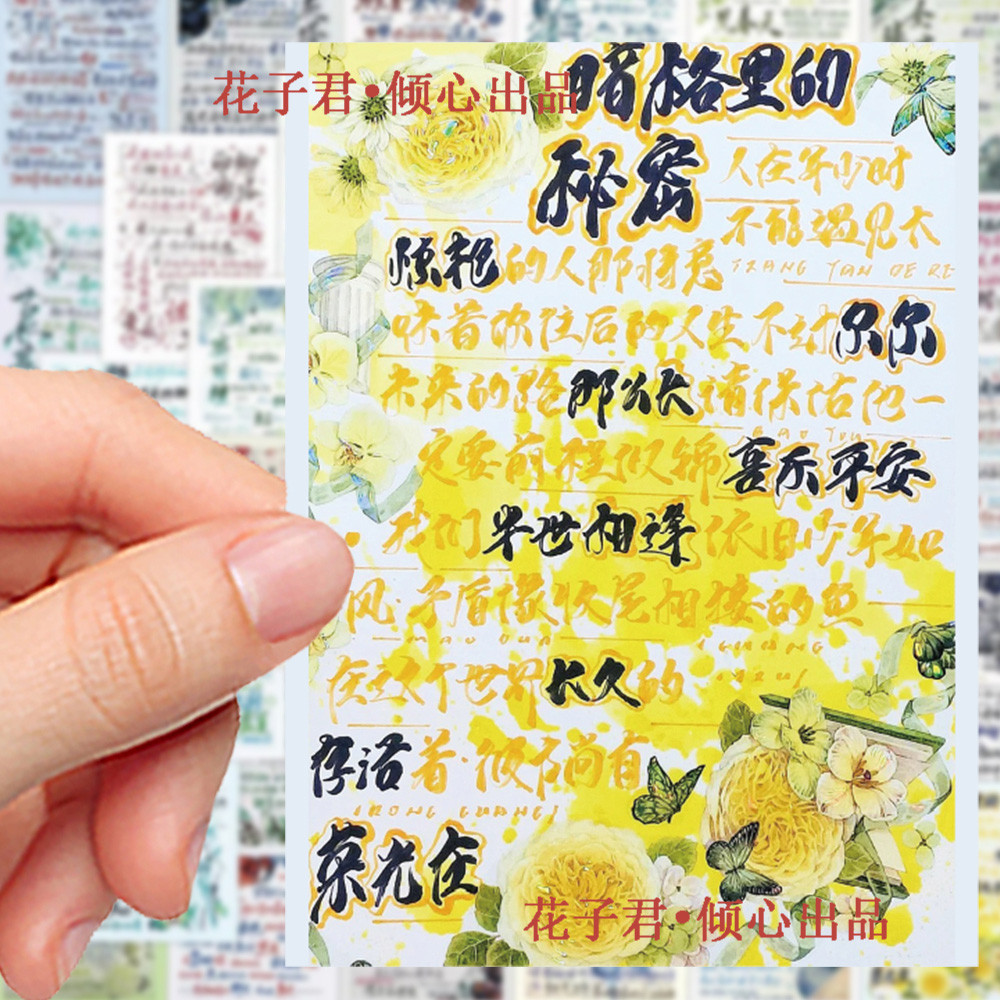 花子君•倾心出品
暗格里的
秘密
人在年少时
不能遇见太
惊艳的人那将意
味着你往后的人生不过尔尔
未来的路那么长请保佑他一
定要前程似锦喜乐平安
我们半世相逢依旧少年如
风·矛盾像收尾相接的鱼
MAO DUN
在这个世界长久的
存活着·彼下尚有
RONG GUANG
荣光在
花子君•倾心出品